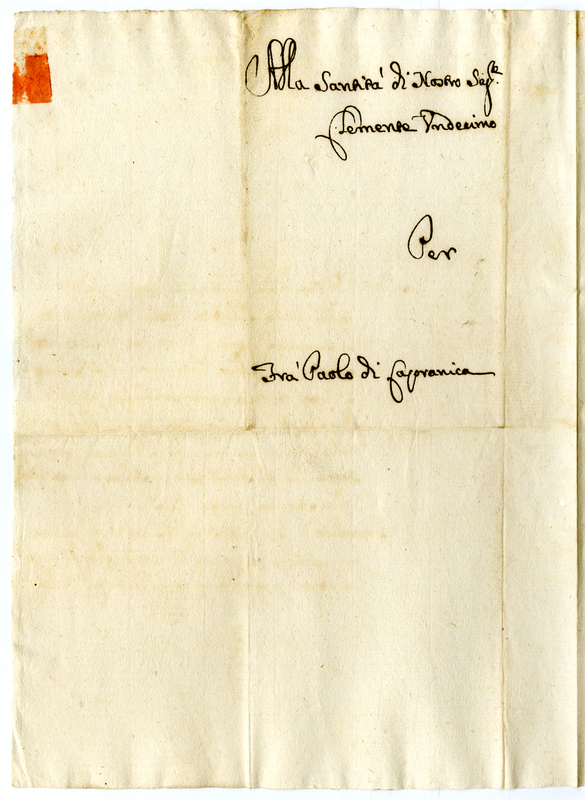 Alla Santità di Nostro Sig.re
Clemente Vndecimo
Per
Frà Paolo di Capranica